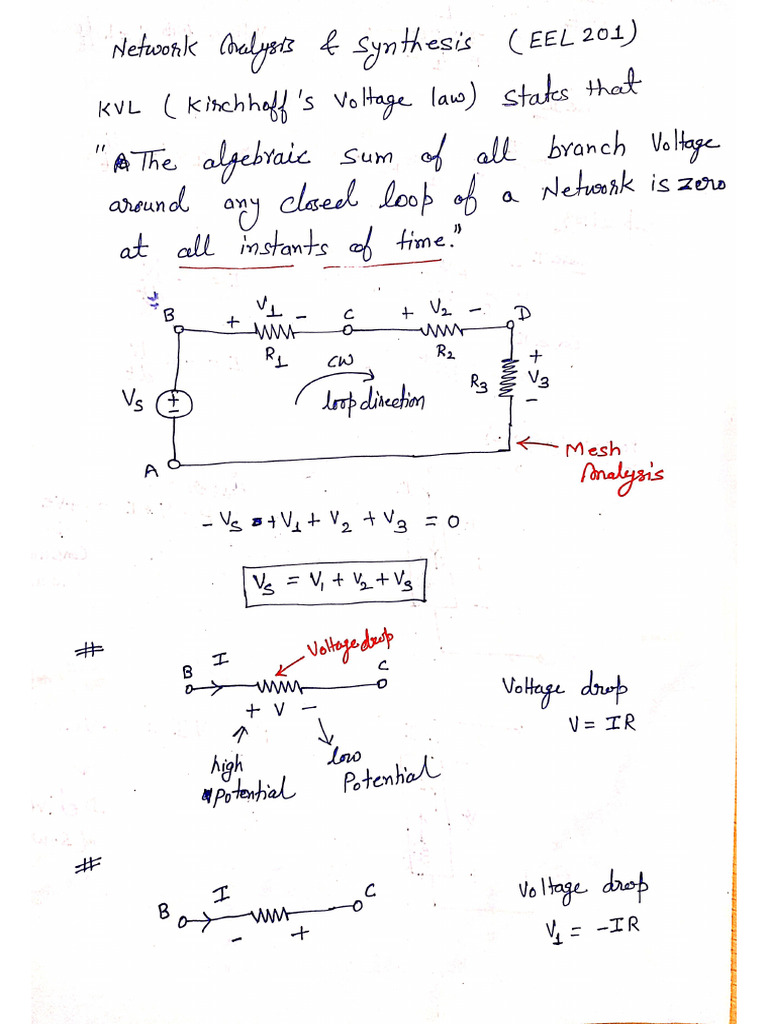 Network Analysis & Synthesis (EEL201)
KVL (Kirchhoff's Voltage law) states that
"The algebraic sum of all branch Voltage
around any closed loop of a Network is zero
at all instants of time."
B + V1 - C + V2 - D
R1 R2
CW
loop direction
R3 + V3 -
Vs + -
A
Mesh
Analysis
- Vs + V1 + V2 + V3 = 0
Vs = V1 + V2 + V3
#
Voltage drop
B I C
+ V -
high
Potential
low
Potential
Voltage drop
V = IR
#
B I C
- +
Voltage drop
V1 = -IR